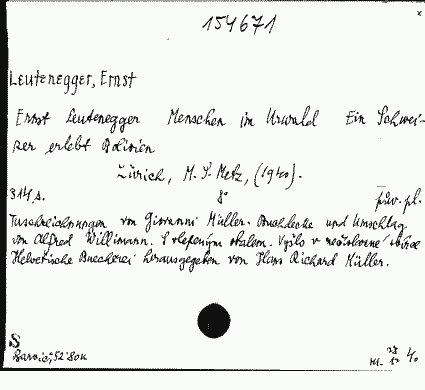 154671
Leutenegger, Ernst
Ernst Leutenegger Menschen im Urwald Ein Schwei-
zer erlebt Bolivien
Zürich, M. S. Metz, (1940).
314, s. 8° pův. pl.
Tuschzeichnungen von Giovanni Müller. Buchdecke und Umschlag
von Alfred Willimann. S vlepeným obalem. Vyšlo v neočíslované sbírce
Helvetische Buecherei herausgegeben von Hans Richard Müller.
S
52